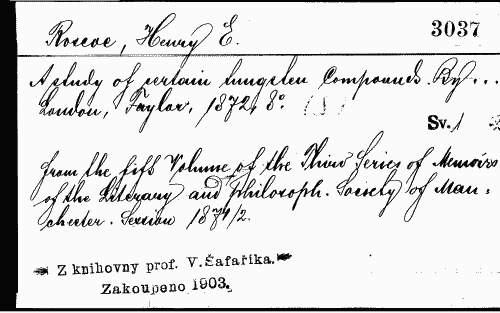 Roscoe, Henry E.
3037
A study of certain tungsten compounds. By...
London, Taylor, 1872, 8°.
Sv. 1
From the fifs Volume of the Third Series of Memoirs
of the Literary and philosoph. Society of Man-
chester. Session 1871/2.
Z knihovny prof. V. Šafaříka.
Zakoupeno 1903.